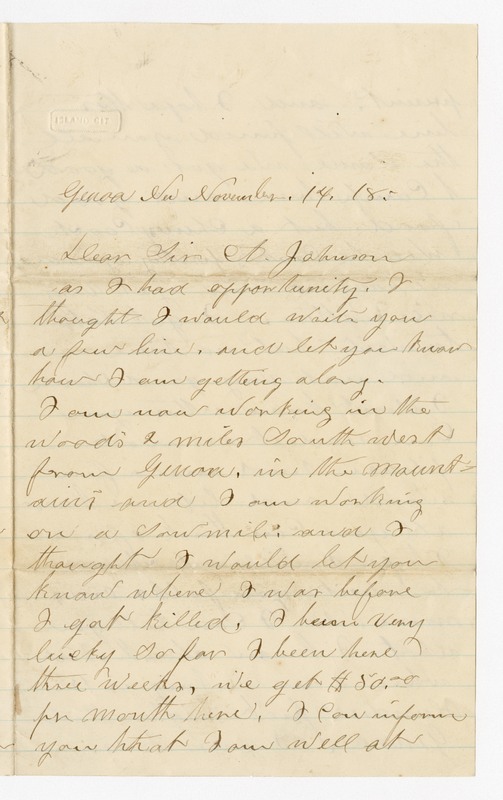 ISLAND CITY
Genoa Nev November. 14. 18
Dear Sir A. Johnson
as I had opportunity. I
thought I would write you
a few line. and let you know
how I am getting along.
I am now working in the
woods 2 miles South west
from Genoa. in the Mount-
ains and I am working
on a Sawmill. and I
thought I would let you
know where I was before
I got killed. I been very
lucky so far I been here
three weeks, we get $50.00
pr month here. I Can inform
you that I am well at